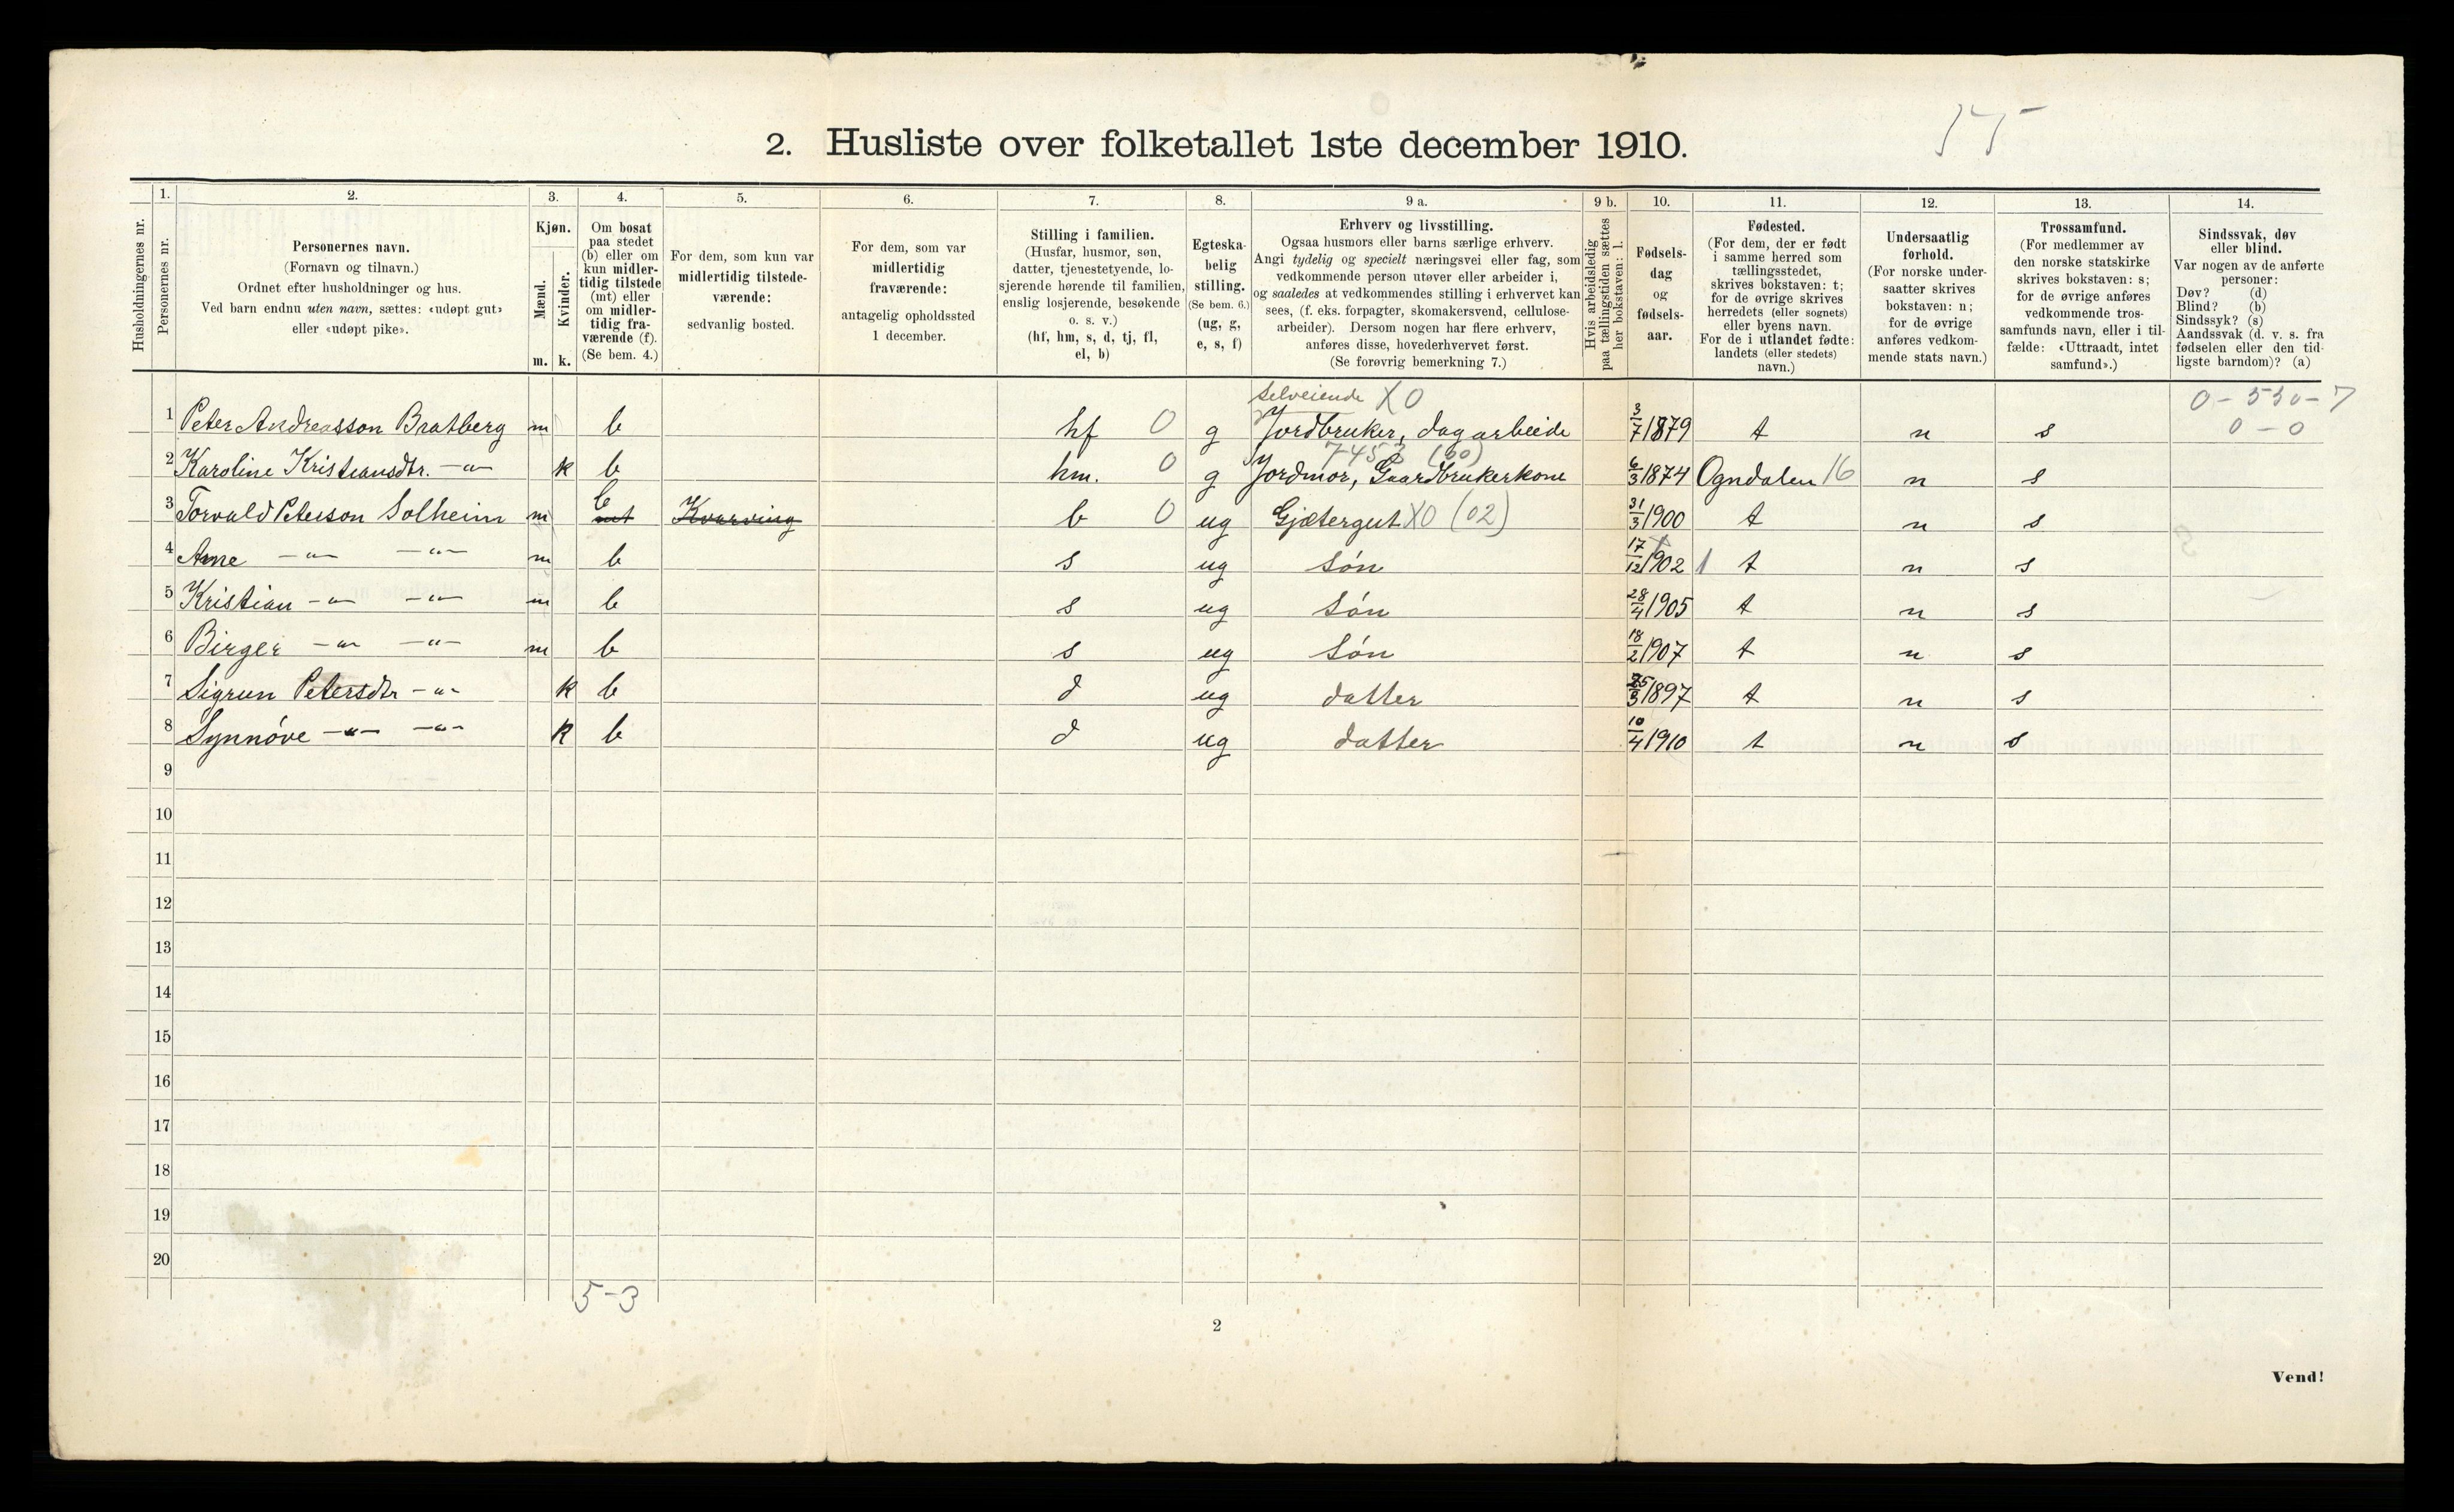 2. Husliste over folketallet 1ste december 1910.
Husholdningernes nr.
1. Personernes nr.
2.
Personernes navn.
(Fornavn og tilnavn.)
Ordnet efter husholdninger og hus.
Ved barn endnu uten navn, sættes: «udøpt gut»
eller «udøpt pike».
3.
Kjøn.
Mænd. m.
Kvinder. k.
4.
Om bosat
paa stedet
(b) eller om
kun midler-
tidig tilstede
(mt) eller
om midler-
tidig fra-
værende (f).
(Se bem. 4.)
5.
For dem, som kun var
midlertidig tilstede-
værende:
sedvanlig bosted.
6.
For dem, som var
midlertidig
fraværende:
antagelig opholdssted
1 december.
7.
Stilling i familien.
(Husfar, husmor, søn,
datter, tjenestetyende, lo-
sjerende hørende til familien,
enslig losjerende, besøkende
o. s. v.)
(hf, hm, s, d, tj, fl,
el, b)
8.
Egteska-
belig
stilling.
(Se bem. 6.)
(ug, g,
e, s, f)
9 a.
Erhverv og livsstilling.
Ogsaa husmors eller barns særlige erhverv.
Angi tydelig og specielt næringsvei eller fag, som
vedkommende person utøver eller arbeider i,
og saaledes at vedkommendes stilling i erhvervet kan
sees, (f. eks. forpagter, skomakersvend, cellulose-
arbeider). Dersom nogen har flere erhverv,
anføres disse, hovederhvervet først.
(Se forøvrig bemerkning 7.)
9 b.
Hvis arbeidsledig
paa tællingstiden sættes
her bokstaven: l.
10.
Fødsels-
dag
og
fødsels-
aar.
11.
Fødested.
(For dem, der er født
i samme herred som
tællingsstedet,
skrives bokstaven: t;
for de øvrige skrives
herredets (eller sognets)
eller byens navn.
For de i utlandet fødte:
landets (eller stedets)
navn.)
12.
Undersaatlig
forhold.
(For norske under-
saatter skrives
bokstaven: n;
for de øvrige
anføres vedkom-
mende stats navn.)
13.
Trossamfund.
(For medlemmer av
den norske statskirke
skrives bokstaven: s;
for de øvrige anføres
vedkommende tros-
samfunds navn, eller i til-
fælde: «Uttraadt, intet
samfund».)
14.
Sindssvak, døv
eller blind.
Var nogen av de anførte
personer:
Døv? (d)
Blind? (b)
Sindssyk? (s)
Aandssvak (d. v. s. fra
fødselen eller den tid-
ligste barndom)? (a)
Selveiende X0 0-530-7
1 Peter Andreasson Bratberg m b hf 0 g Jordbruker, dagarbeide 3/7 1879 t n s 0-0
7453 (60)
2 Karoline Kristiansdtr. -"- k b hm. 0 g Jordmor, Gaardbrukerkone 6/3 1874 Ogndalen 16 n s
3 Torvald Peterson Solheim m b mt Kvarving b 0 ug Gjætergut X0 (02) 31/3 1900 t n s
4 Arne -"- -"- m b s ug Søn 17/12 1902 1 t n s
5 Kristian -"- -"- m b s ug Søn 28/4 1905 t n s
6 Birger -"- -"- m b s ug Søn 18/2 1907 t n s
7 Sigrun Petersdtr -"- k b d ug datter 25/3 1897 t n s
8 Synnóve -"- -"- k b d ug datter 10/4 1910 t n s
9
10
11
12
13
14
15
16
17
18
19
20
5-3
2
Vend!